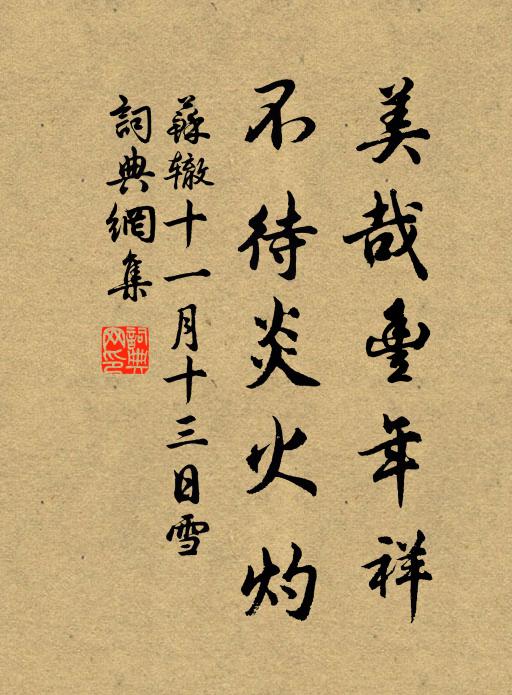 美哉豐年祥
不待炎火灼
蘇辙十一月十三日雪
詞典網集
詞典网印